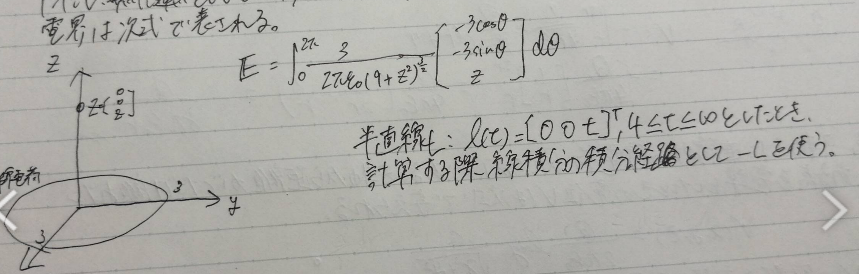 電界は次式で表される。
E = ∫₀^{2π} 3/(2πε₀(9+z²)^{3/2}) [-3cosθ -3sinθ z] dθ
z
z[0 0 z]
半直線L: l(t)=[0 0 t]ᵀ, 4≤t≤∞としたとき、
計算する際線積分の積分経路として-Lを使う。
3
y
3